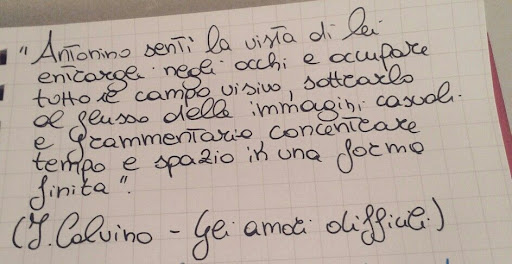 "Antonino sentì la vista di lei
entrargli negli occhi e occupare
tutto il campo visivo, sottrarlo
al flusso delle immagini casuali
e frammentario concentrare
tempo e spazio in una forma
finita".
(I. Calvino - Gli amori difficili)